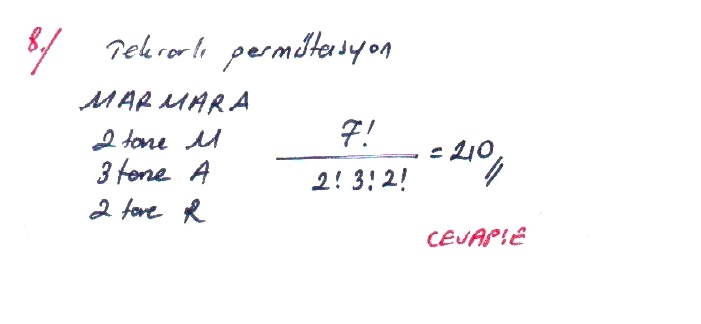 8./ Tekrarlı permütasyon
MARMARA
2 tane M
3 tane A
2 tane R
7!
2! 3! 2!
= 210
CEVAP: E